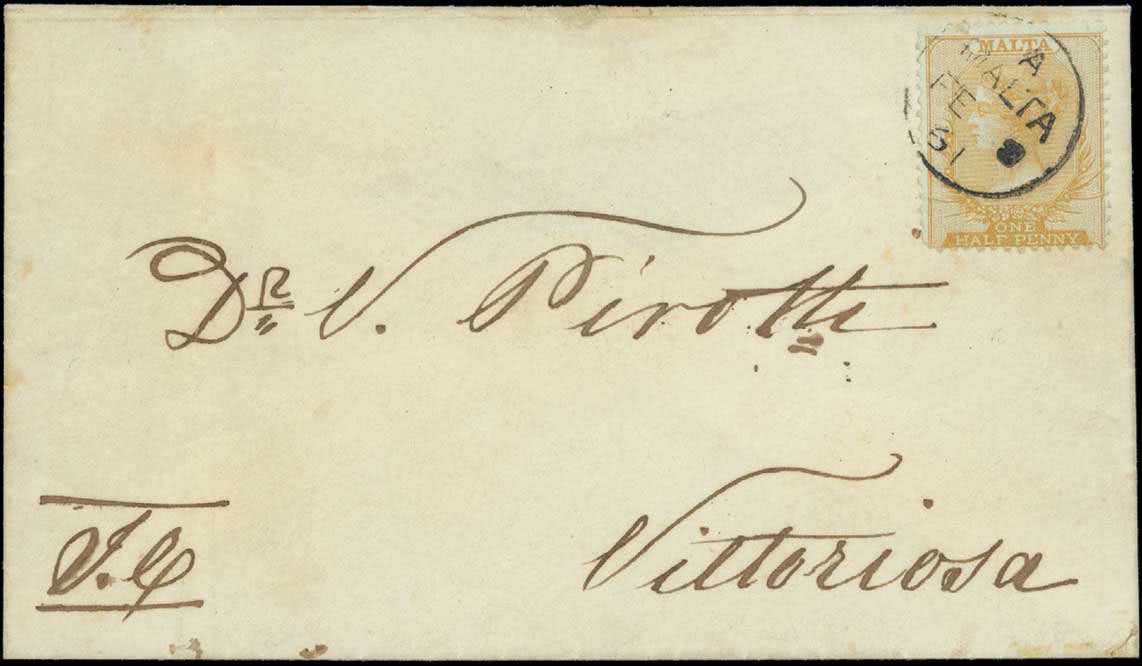 MALTA
A
MALTA
FE
ONE
HALF PENNY
Dr. V. Pirotti
Vittoriosa